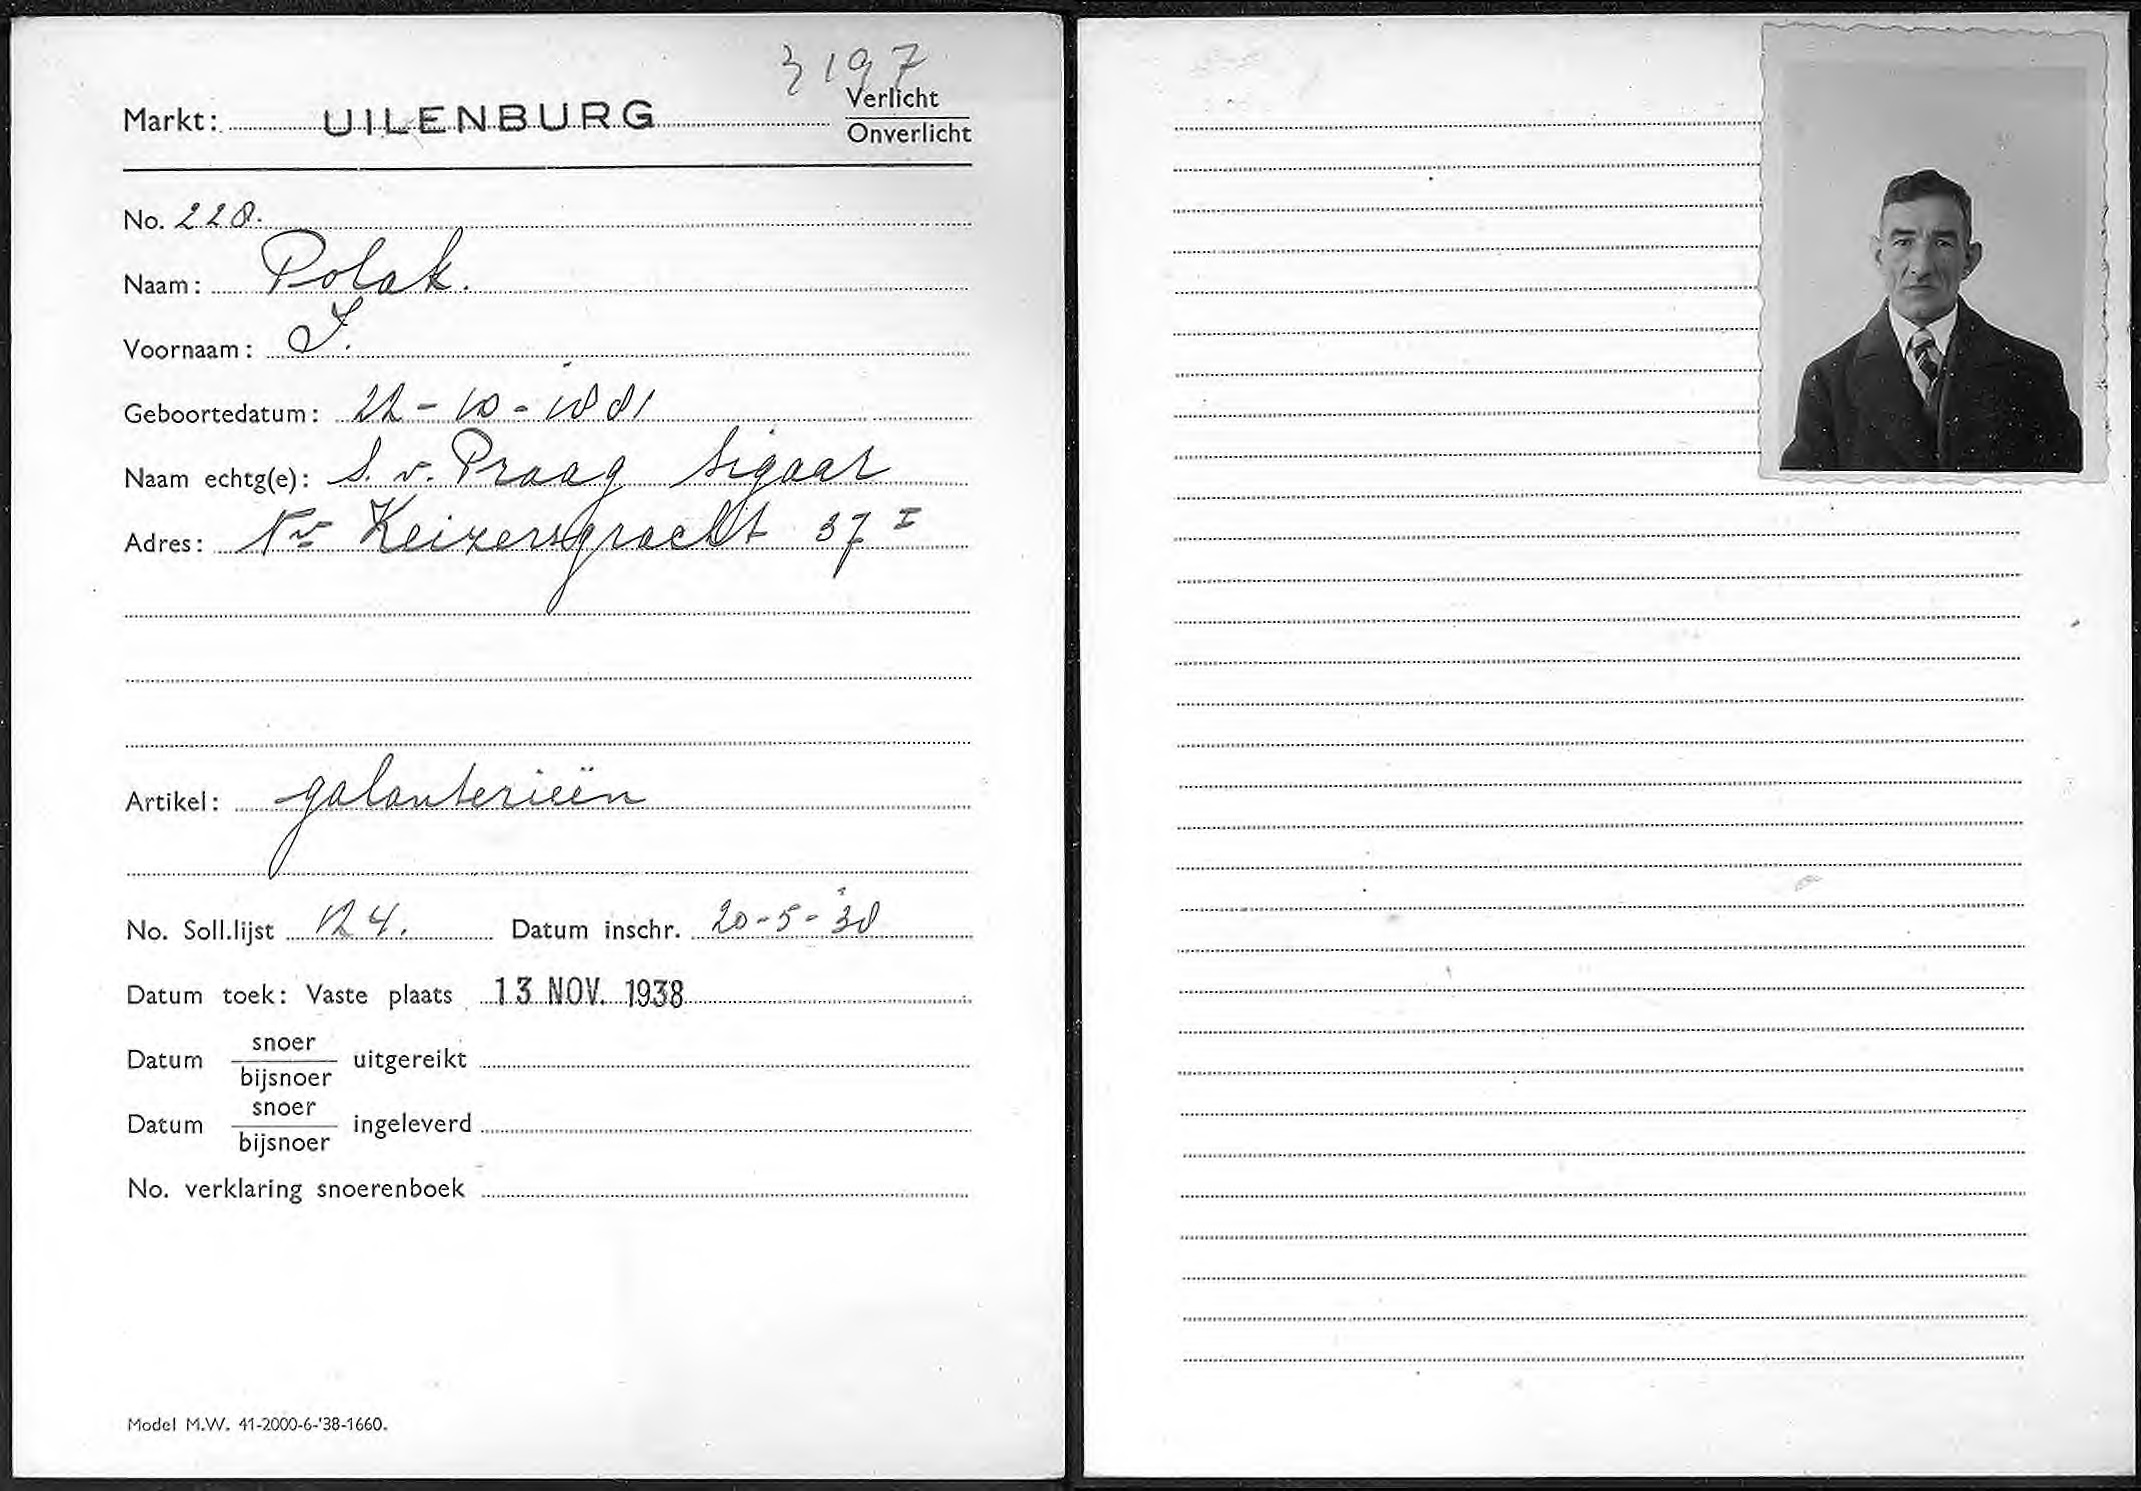 3197
Markt: UILENBURG Verlicht
Onverlicht
No. 228.
Naam: Polak.
Voornaam: I.
Geboortedatum: 22-10-1881
Naam echtg(e): S. v. Praag Sigaar
Adres: Nwe Keizersgracht 37 I
Artikel: galanterieën
No. Soll.lijst 124. Datum inschr. 20-5-38
Datum toek: Vaste plaats 13 NOV. 1938
Datum snoer
bijsnoer uitgereikt
Datum snoer
bijsnoer ingeleverd
No. verklaring snoerenboek
Model M.W. 41-2000-6-'38-1660.